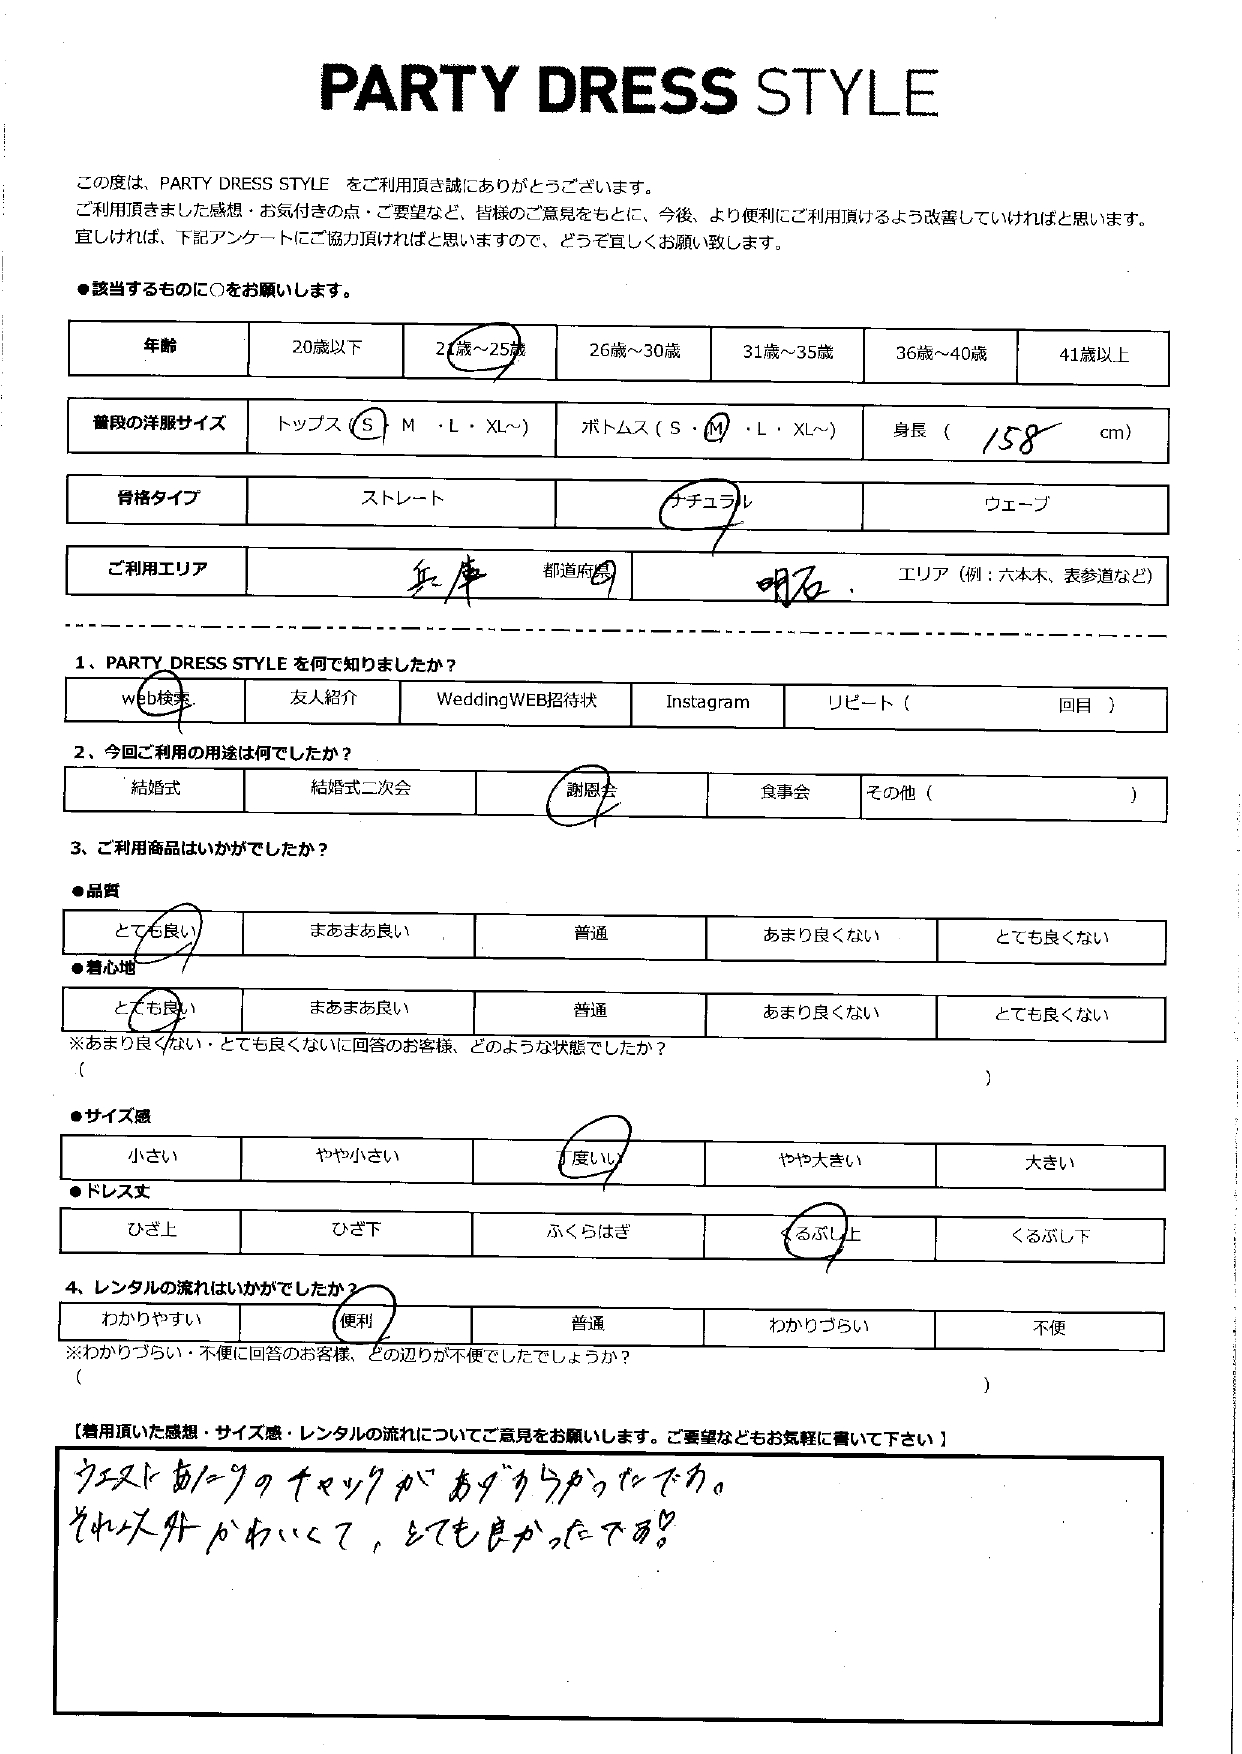 PARTY DRESS STYLE
この度は、PARTY DRESS STYLE をご利用頂き誠にありがとうございます。
ご利用頂きました感想・お気付きの点・ご要望など、皆様のご意見をもとに、今後、より便利にご利用頂けるよう改善していければと思います。
宜しければ、下記アンケートにご協力頂ければと思いますので、どうぞ宜しくお願い致します。
●該当するものに○をお願いします。
年齢 20歳以下 21歳～25歳 26歳～30歳 31歳～35歳 36歳～40歳 41歳以上
普段の洋服サイズ トップス ( S ・ M ・L ・ XL～) ボトムス ( S ・ M ・L ・ XL～) 身長 ( 158 cm)
骨格タイプ ストレート ナチュラル ウェーブ
ご利用エリア 兵庫 都道府県 明石. エリア（例：六本木、表参道など）
1、PARTY DRESS STYLE を何で知りましたか？
web検索 友人紹介 WeddingWEB招待状 Instagram リピート（ 回目 ）
2、今回ご利用の用途は何でしたか？
結婚式 結婚式二次会 謝恩会 食事会 その他（ ）
3、ご利用商品はいかがでしたか？
●品質
とても良い まあまあ良い 普通 あまり良くない とても良くない
●着心地
とても良い まあまあ良い 普通 あまり良くない とても良くない
※あまり良くない・とても良くないに回答のお客様、どのような状態でしたか？
（ ）
●サイズ感
小さい やや小さい 丁度いい やや大きい 大きい
●ドレス丈
ひざ上 ひざ下 ふくらはぎ くるぶし上 くるぶし下
4、レンタルの流れはいかがでしたか？
わかりやすい 便利 普通 わかりづらい 不便
※わかりづらい・不便に回答のお客様、どの辺りが不便でしたでしょうか？
（ ）
【着用頂いた感想・サイズ感・レンタルの流れについてご意見をお願いします。ご要望などもお気軽に書いて下さい 】
ウエストあたりのチャックがあげずらかったです。
それ以外かわいくて、とても良かったです!♡